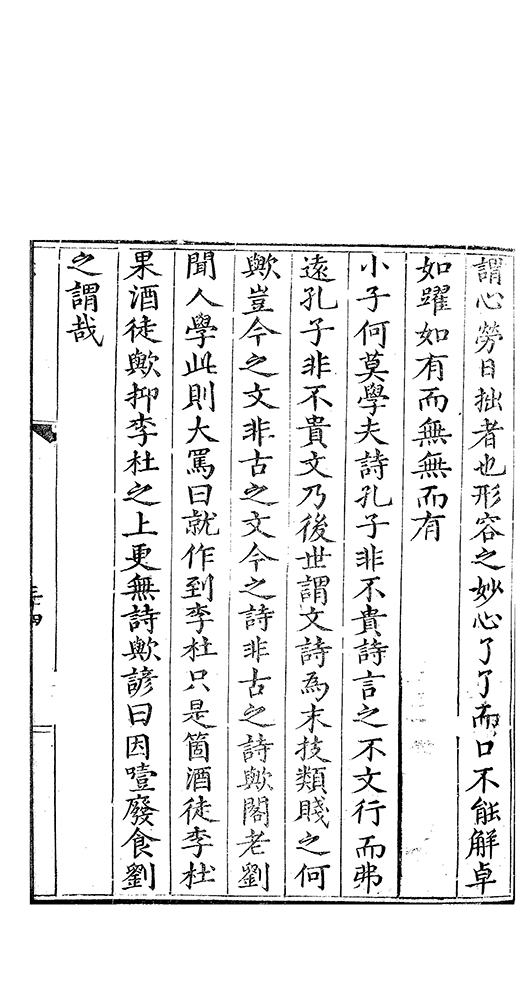 謂心勞日拙者也形容之妙心了了而口不能解卓
如躍如有而無無而有
小子何莫學夫詩孔子非不貴詩言之不文行而弗
遠孔子非不貴文乃後世謂文詩為末技類賤之何
歟豈今之文非古之文今之詩非古之詩歟閣老劉
聞人學此則大罵曰就作到李杜只是箇酒徒李杜
果酒徒歟抑李杜之上更無詩歟諺曰因噎廢食劉
之謂哉
三十四